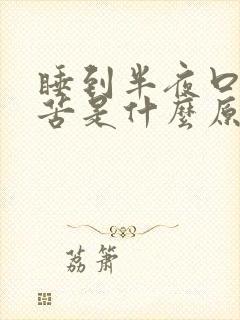 睡到半夜口
苦是什麼原
荔簫